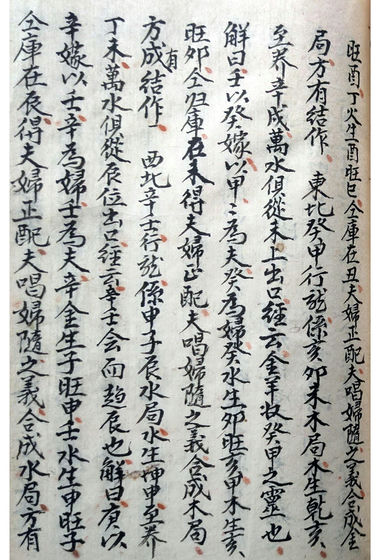 旺酉丁火生酉旺巳仝庫在丑夫婦正配夫唱婦隨之義合成金
局方有結作　東北癸甲行龍係亥卯未木局木生乾亥
至养辛成萬水俱從未上出口經云金羊收癸甲之靈也
解曰王以癸嫁以甲甲為夫癸為婦癸水生卯旺亥甲木生亥
旺卯仝归庫在未得夫婦正配夫唱婦隨之義合成木局
方成有結作　西北辛壬行龍係申子辰水局水生坤申至养
丁未萬水俱從辰位出口經云辛壬会而趋辰也解曰庚以
辛嫁以壬辛為婦壬為夫辛金生子旺申壬水生申旺子
仝庫在辰得夫婦正配夫唱婦隨之義合成水局方有